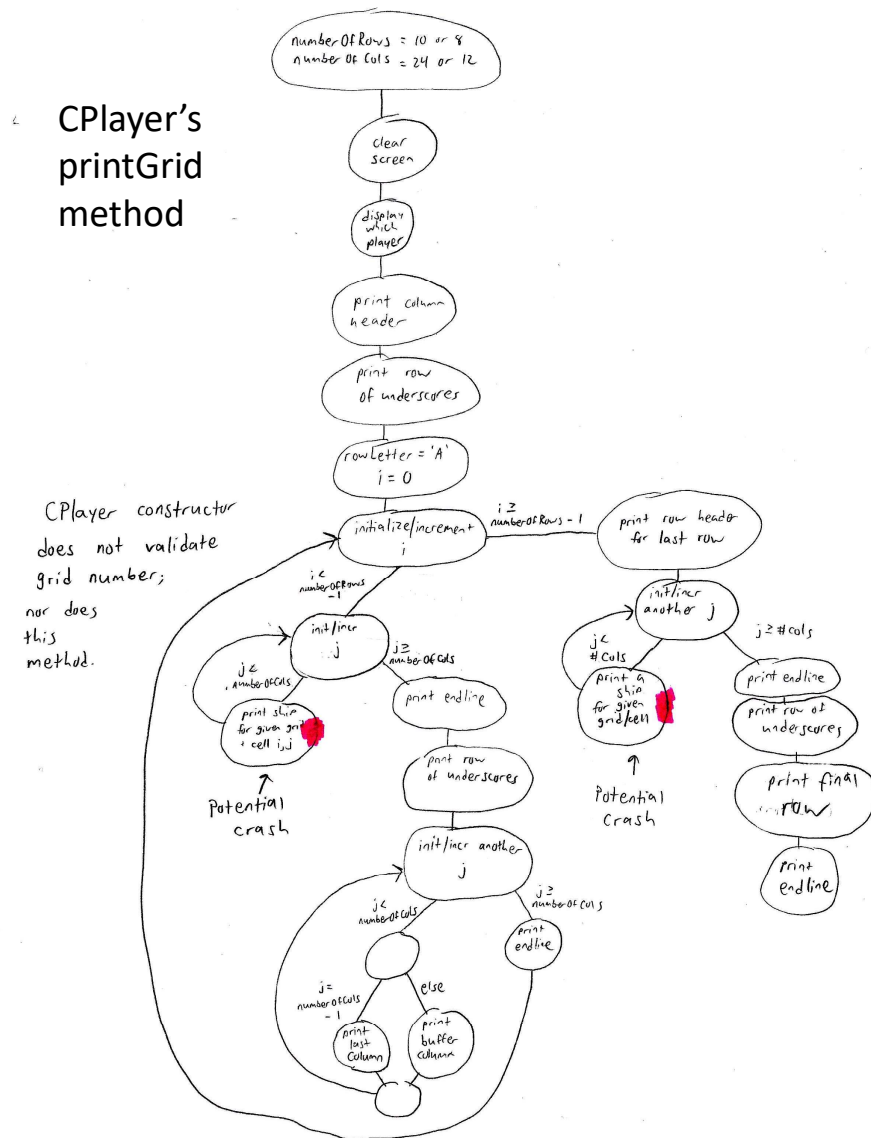 numberOfRows = 10 or 8
numberOfCols = 24 or 12
CPlayer's
printGrid
method
clear
screen
display
which
player
print column
header
print row
of underscores
rowLetter = 'A'
i = 0
CPlayer constructor
does not validate
grid number;
nor does
this
method.
initialize/increment
i
i ≥
numberOfRows - 1
print row header
for last row
i <
numberOfRows
- 1
init/incr
j
j <
numberOfCols
j ≥
numberOfCols
print ship
for given grid
+ cell i,j
Potential
crash
print endline
print row
of underscores
init/incr another
j
j <
numberOfCols
j ≥
numberOfCols
print
endline
j =
numberOfCols
- 1
else
print
last
column
print
buffer
column
init/incr
another j
j <
#cols
j ≥ #cols
print a
ship
for given
grid/cell
Potential
crash
print endline
print row of
underscores
print final
row
print
endline